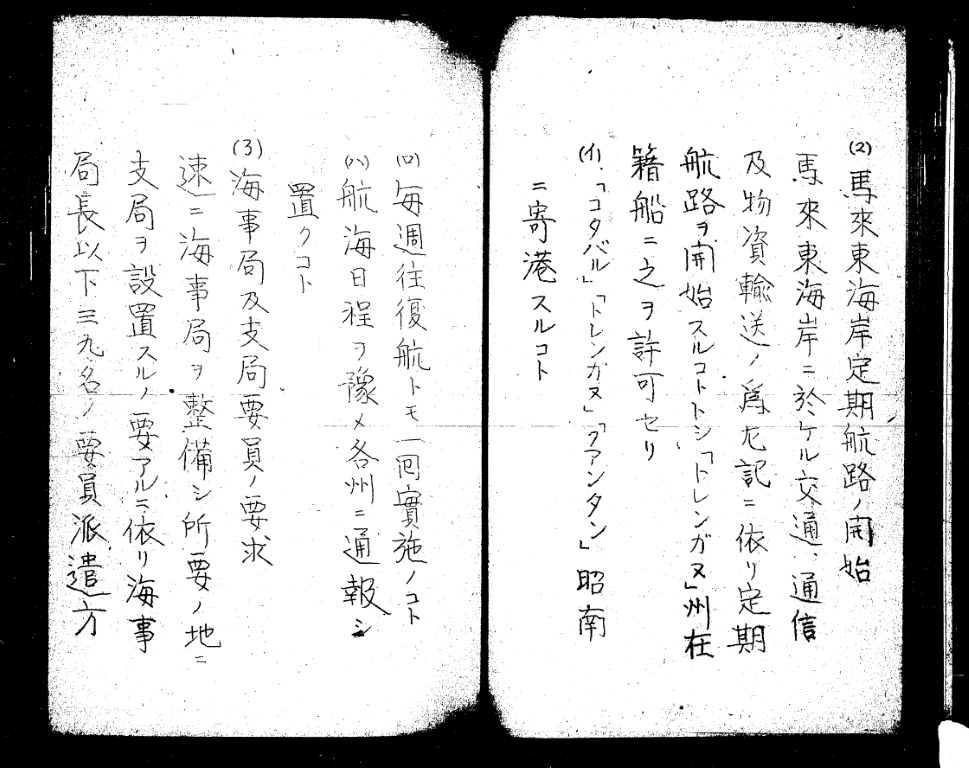 (2)馬來東海岸定期航路ノ開始
馬來東海岸ニ於ケル交通、通信
及物資輸送ノ爲左記ニ依リ定期
航路ヲ開始スルコトトシ「トレンガヌ」州在
籍船ニ之ヲ許可セリ
(イ)、「コタバル」「トレンガヌ」「クアンタン」昭南
ニ寄港スルコト
(ロ)毎週往復航トモ一回實施ノコト
(ハ)航海日程ヲ豫メ各州ニ通報シ
置クコト
(3)海事局及支局要員ノ要求
速ニ海事局ヲ整備シ所要ノ地ニ
支局ヲ設置スルノ要アルニ依リ海事
局長以下三九名ノ要員派遣方